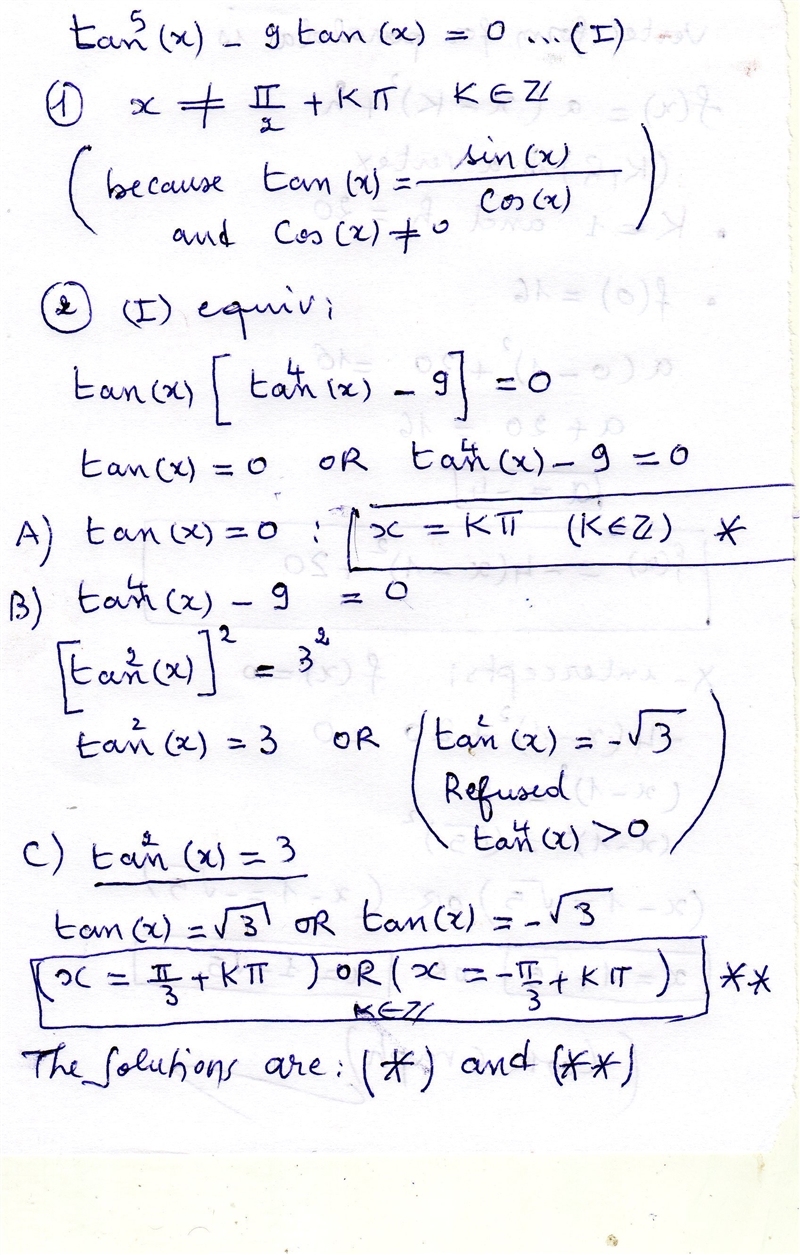 tan⁵(x) - 9 tan(x) = 0 ... (I)
① x ≠ π/2 + Kπ K∈ℤ
(because tan(x) = sin(x)/cos(x)
and cos(x) ≠ 0)
② (I) equiv:
tan(x) [tan⁴(x) - 9] = 0
tan(x) = 0 OR tan⁴(x) - 9 = 0
A) tan(x) = 0 : x = Kπ (K∈ℤ) *
B) tan⁴(x) - 9 = 0
[tan²(x)]² = 3²
tan²(x) = 3 OR (tan²(x) = -√3
Refused
tan⁴(x) > 0)
C) tan²(x) = 3
tan(x) = √3 OR tan(x) = -√3
(x = π/3 + Kπ) OR (x = -π/3 + Kπ) **
K∈ℤ
The solutions are: (*) and (**)